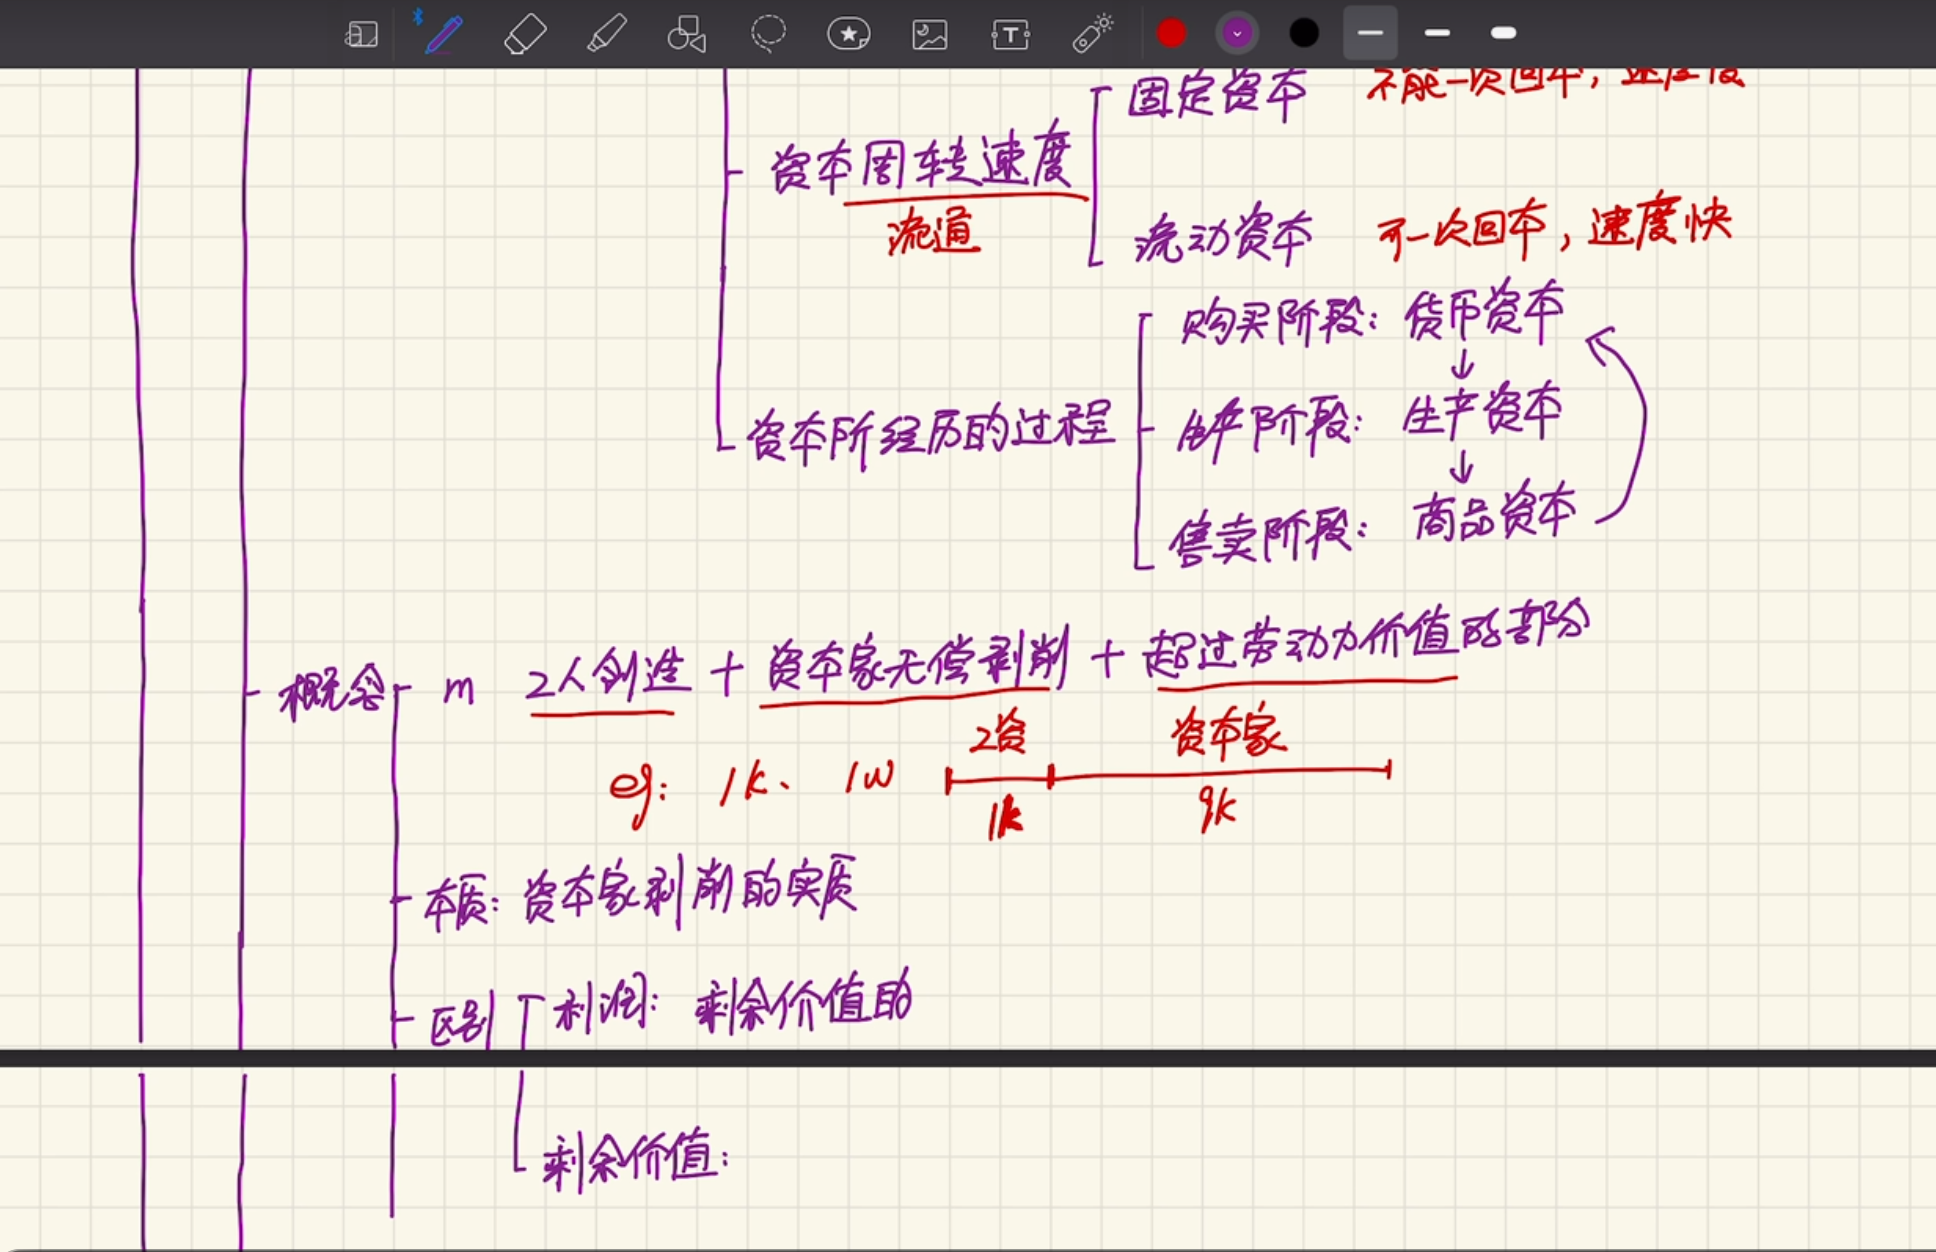 固定资本 不能一次回本，速度慢
资本周转速度
流通
流动资本 可一次回本，速度快
购买阶段：货币资本
↓
资本所经历的过程 生产阶段：生产资本
↓
售卖阶段：商品资本
概念 m 工人创造 + 资本家无偿剥削 + 超过劳动力价值的部分
工资 资本家
eg: 1k、1w
1k 9k
本质：资本家剥削的实质
区别 利润：剩余价值的
剩余价值：